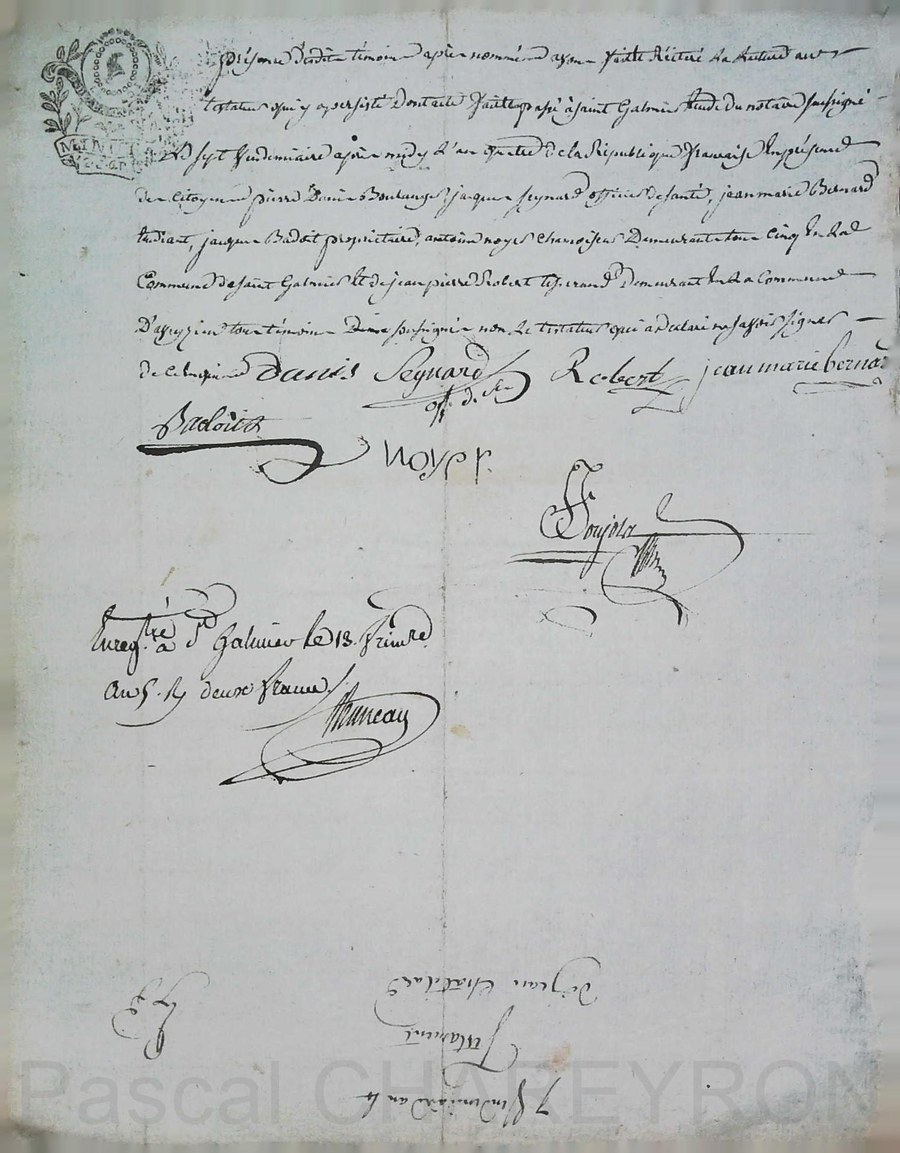 présence desdits témoins après nommés avons faitte Réitéré la lecture au
testateur qui y a persisté Dont acte fait et passé à saint Galmier étude du notaire soussigné
le sept Vendemiaire après midy l'an quatre de la République française En présence
des Citoyens pierre Danis Boulanger, jacques seynard officier de santé, jean marie Bernard
étudiant, jacques Badoit propriétaire, antoine noyer Chamoiseur Demeurant tous Cinq En la de
Commune de saint Galmier Et de jean pierre Robert tisserand Demeurant En la Commune
D'aveyzieu tous témoins soussignés non le testateur qui a déclaré ne savoir signer
de ce enquis Danis Seynard Robert jean marie bernard
off. de sté
Badoit
noyer
Enregtré à St Galmier le 13. frimre
An 5. R deux francs
Bruneau
7 Vendemiaire an 4
Testament
de jean